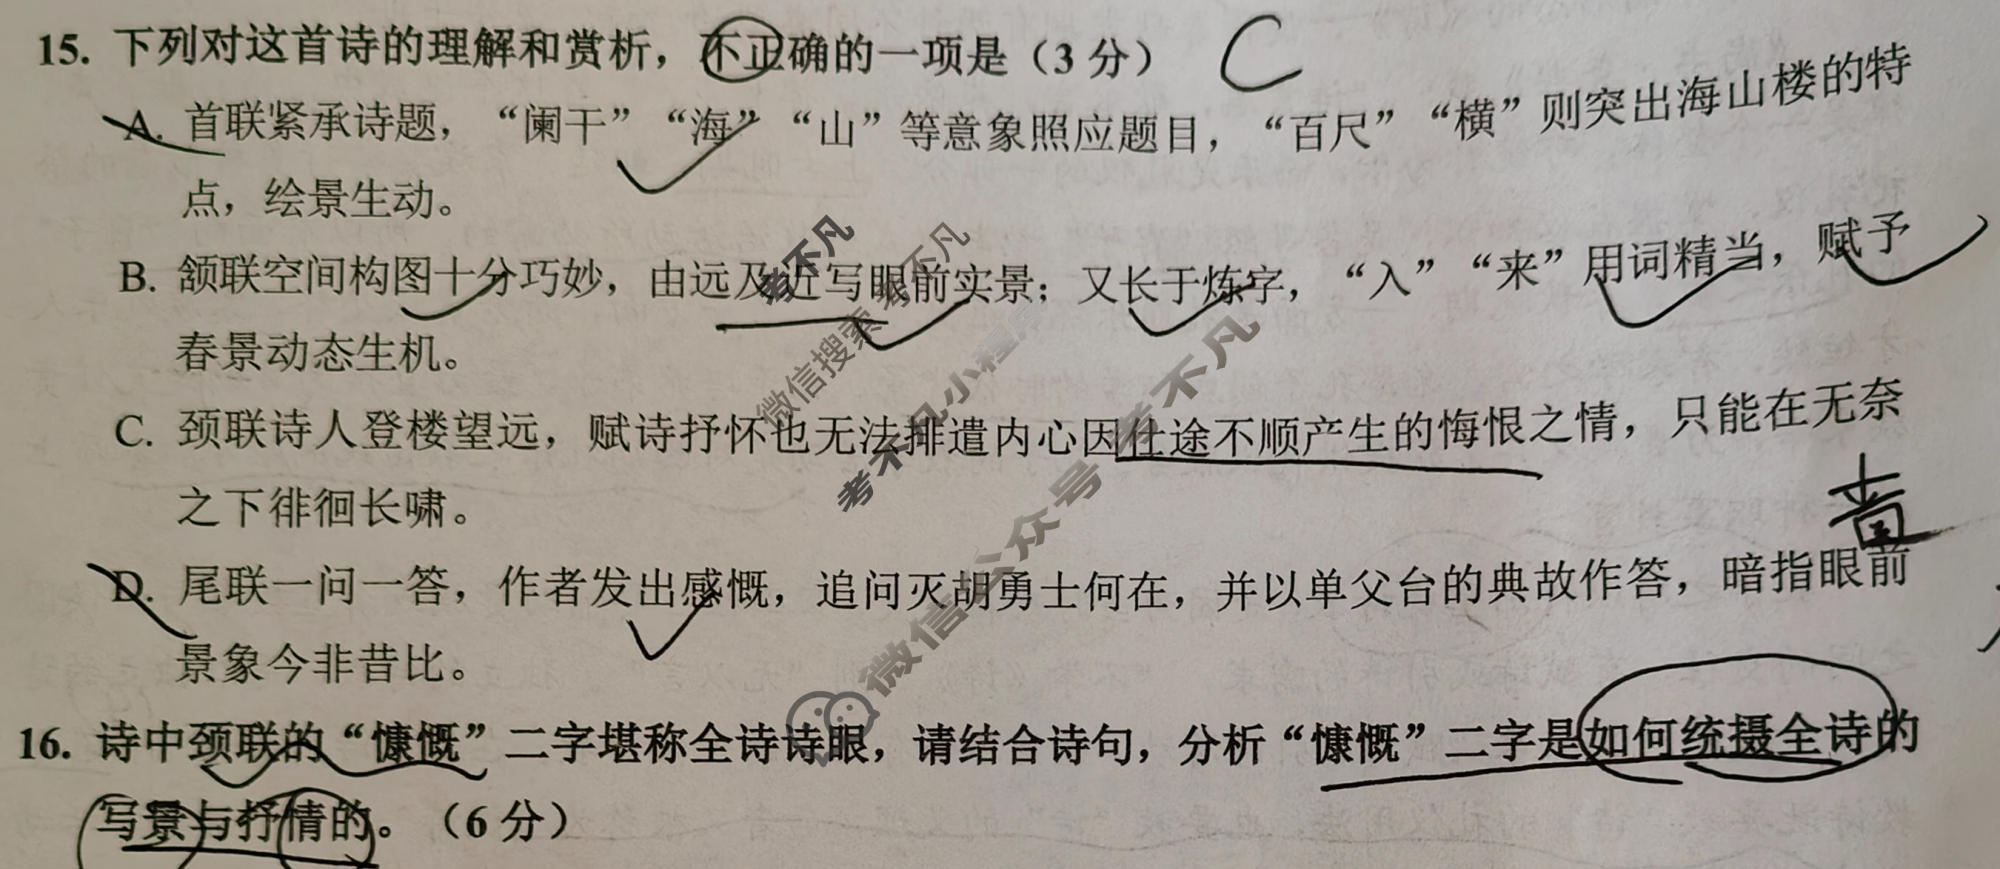 15. 下列对这首诗的理解和赏析，不正确的一项是（3 分） C
A. 首联紧承诗题，“阑干”“海”“山”等意象照应题目，“百尺”“横”则突出海山楼的特
点，绘景生动。
B. 颔联空间构图十分巧妙，由远及近写眼前实景；又长于炼字，“入”“来”用词精当，赋予
春景动态生机。
C. 颈联诗人登楼望远，赋诗抒怀也无法排遣内心因仕途不顺产生的悔恨之情，只能在无奈
之下徘徊长啸。
D. 尾联一问一答，作者发出感慨，追问灭胡勇士何在，并以单父台的典故作答，暗指眼前
景象今非昔比。
16. 诗中颈联的“慷慨”二字堪称全诗诗眼，请结合诗句，分析“慷慨”二字是如何统摄全诗的
写景与抒情的。（6 分）
考不凡
微信搜索 考不凡
考不凡小程序
微信公众号 考不凡